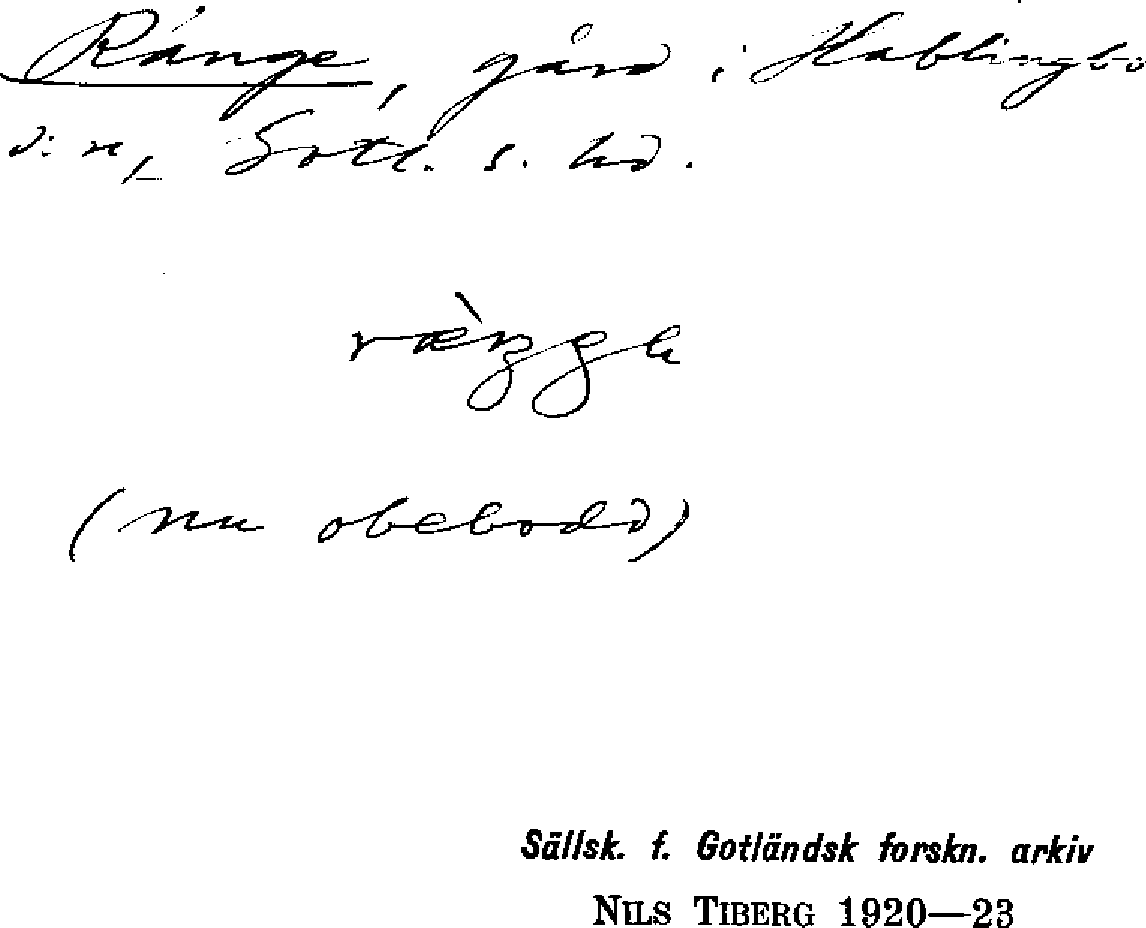 Ränge, gård i Hablingbo
d:n, Gotl. s. hd.
ræ̀ŋgɛ
(nu obebodd)
Sällsk. f. Gotländsk forskn. arkiv
NILS TIBERG 1920—23